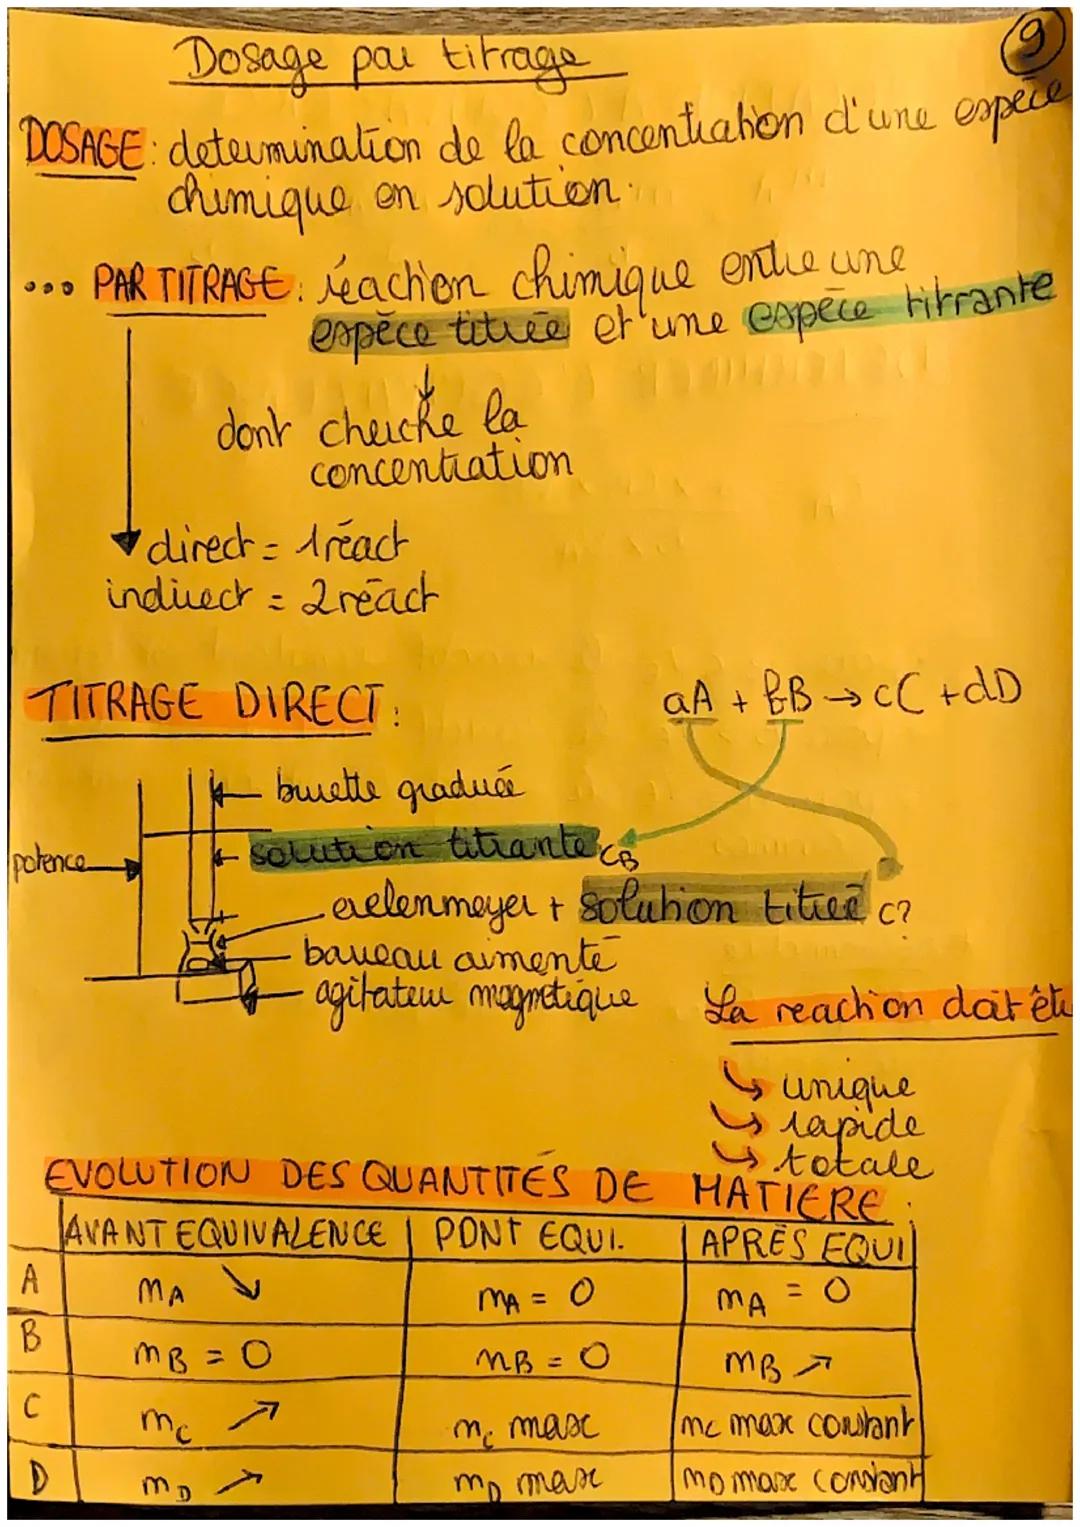 9
Dosage par titrage
DOSAGE: determination de la concentration d'une espèce
chimique en solution.
... PAR TITRAGE: réaction chimique entre une
espèce titrée et une espèce titrante
↓
dont cherche la
concentration
direct = 1 réact
indirect = 2 réact
TITRAGE DIRECT:
aA + bB → cC + dD
burette graduée
solution titrante CB
potence
erelenmeyer + solution titrée C?
barreau aimenté
agitateur magnetique
La reaction doit êt
↳ unique
↳ rapide
↳ totale
EVOLUTION DES QUANTITÉS DE MATIERE:
AVANT EQUIVALENCE | PONT EQUI. | APRÈS EQUI
A | nA ↘ | nA = 0 | nA = 0
B | nB = 0 | nB = 0 | nB ↗
C | nc ↗ | nc max | nc max constant
D | nD ↗ | nD max | nD max constant